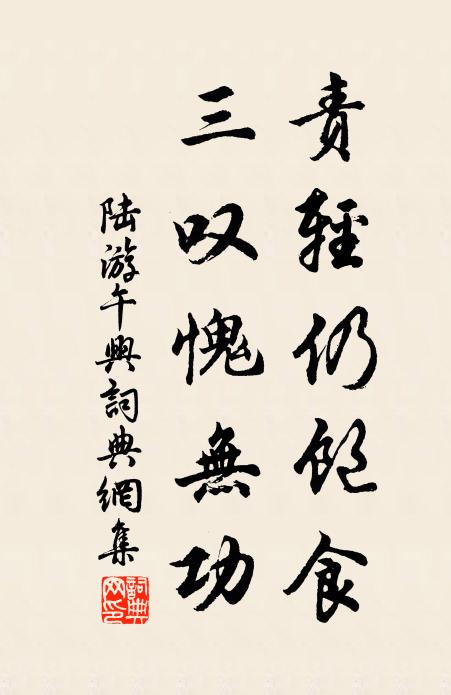 責輕仍飽食
三叹愧無功
陆游午興詞典網集
詞典网印